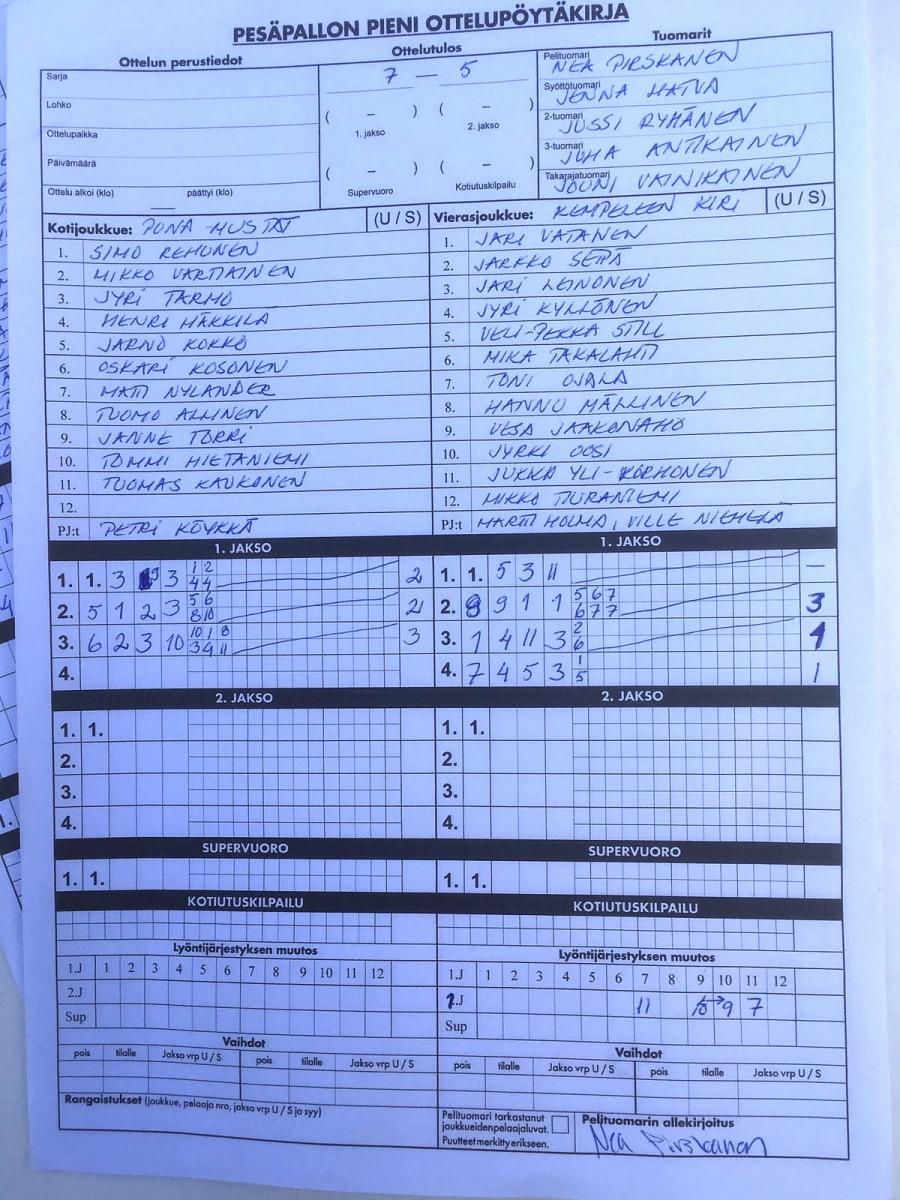 PESÄPALLON PIENI OTTELUPÖYTÄKIRJA
Ottelun perustiedot
Sarja
Lohko
Ottelupaikka
Päivämäärä
Ottelu alkoi (klo) päättyi (klo)
Ottelutulos
7 – 5
( – ) ( – )
1. jakso 2. jakso
( – ) ( – )
Supervuoro Kotiutuskilpailu
Tuomarit
Pelituomari NEA PIRSKANEN
Syöttötuomari JENNA HATVA
2-tuomari JUSSI RYHÄNEN
3-tuomari JUHA ANTIKAINEN
Takarajatuomari JOUNI VAINIKAINEN
Kotijoukkue: PUNA-MUSTAT (U / S)
1. SIMO REHUNEN
2. MIKKO VARTIAINEN
3. JYRI TARMO
4. HENRI HÄKKILÄ
5. JARNO KOKKO
6. OSKARI KOSONEN
7. MATTI NYLANDER
8. TUOMO ALLINEN
9. JANNE TORRI
10. TOMMI HIETANIEMI
11. TUOMAS KAUKONEN
12.
PJ:t PETRI KÖYKKÄ
Vierasjoukkue: KEMPELEEN KIRI (U / S)
1. JARI VATANEN
2. JARKKO SEPÄ
3. JARI LEINONEN
4. JYRI KYLLÖNEN
5. VELI-PEKKA STILL
6. MIKA TAKALAHTI
7. TONI OJALA
8. HANNU MÄLLINEN
9. VESA JAAKONAHO
10. JYRKI OOSI
11. JUKKA YLI-KORHONEN
12. MIKKO TURANIEMI
PJ:t MARTTI HOLMA, VILLE NIEMELÄ
1. JAKSO
1. 1. 3 3 1 2 4 4 2
2. 5 1 2 3 5 6 8 10 2
3. 6 2 3 10 10 1 8 3 4 11 3
4.
2. JAKSO
1. 1.
2.
3.
4.
SUPERVUORO
1. 1.
KOTIUTUSKILPAILU
Lyöntijärjestyksen muutos
1.J 1 2 3 4 5 6 7 8 9 10 11 12
2.J
Sup
Vaihdot
pois tilalle Jakso vrp U / S pois tilalle Jakso vrp U / S
Rangaistukset (joukkue, pelaaja nro, jakso vrp U / S ja syy)
1. JAKSO
1. 1. 5 3 11 –
2. 8 9 1 1 5 6 7 6 7 7 3
3. 1 4 11 3 2 6 1
4. 7 4 5 3 1 5 1
2. JAKSO
1. 1.
2.
3.
4.
SUPERVUORO
1. 1.
KOTIUTUSKILPAILU
Lyöntijärjestyksen muutos
1.J 1 2 3 4 5 6 7 8 9 10 11 12
1.J 11 9 7
Sup
Vaihdot
pois tilalle Jakso vrp U / S pois tilalle Jakso vrp U / S
Pelituomari tarkastanut
joukkueidenpelaajaluvat.
Puutteet merkitty erikseen.
Pelituomarin allekirjoitus
Nea Pirskanen